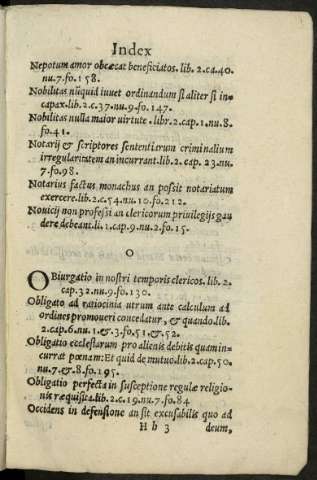 Index
Nepotum amor obcæcat beneficiatos. lib. 2. ca. 40.
nu. 7. fo. 158.
Nobilitas nũquid iuuet ordinandum si aliter sit in-
capax. lib. 2. c. 37. nu. 9. fo. 147.
Nobilitas nulla maior uirtute. libr. 2. cap. 1. nu. 8.
fo. 41.
Notarij & scriptores sententiarum criminalium
irregularitatem an incurrant. lib. 2. cap. 23. nu.
7. fo. 98.
Notarius factus monachus an possit notariatum
exercere. lib. 2. c. 54. nu. 10. fo. 212.
Nouicij non professi an clericorum priuilegijs gau
dere debeant. li. 1. cap. 9. nu. 2. fo. 15.
O
OBiurgatio in nostri temporis clericos. lib. 2.
cap. 32. nu. 9. fo. 130.
Obligato ad ratiocinia utrum ante calculum ad
ordines promoueri concedatur, & quando. lib.
2. cap. 6. nu. 1. & 3. fo. 51. & 52.
Obligatio ecclesiarum pro alienis debitis quam in-
currat pœnam: Et quid de mutuo. lib. 2. cap. 50.
nu. 7. & 8. fo. 195.
Obligatio perfecta in susceptione regulæ religio-
nis ræquisita. lib. 2. c. 19. nu. 7. fo. 84
Occidens in defensione an sit excusabilis quo ad
H h 3 deum,